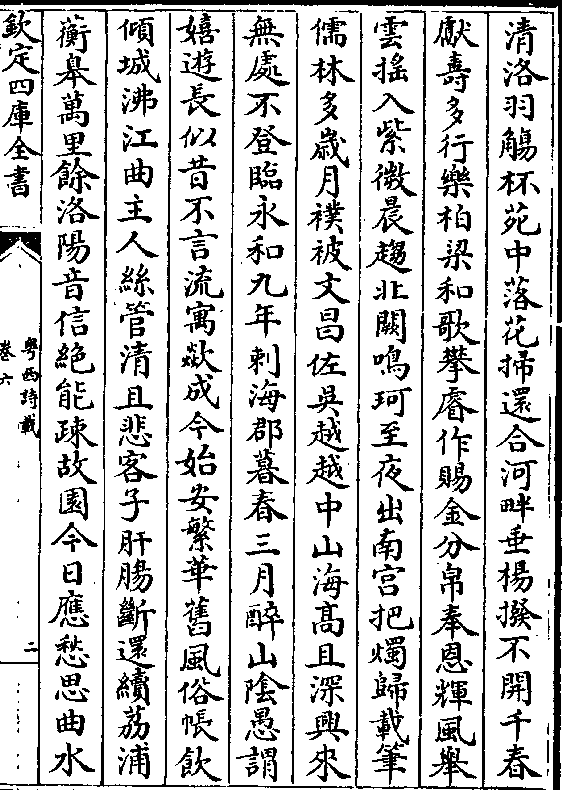 清洛羽觴杯苑中落花掃還合河畔垂楊撥不開千春
獻壽多行樂柏梁和歌攀睿作賜金分帛奉恩輝風舉
雲揺入紫微晨趨北闕鳴珂至夜出南宫把燭歸載筆
儒林多歲月襆被文昌佐吳越越中山海髙且深興來
無處不登臨永和九年刺海郡暮春三月醉山陰愚謂
嬉遊長似昔不言流寓歘成今始安繁華舊風俗帳飲
傾城沸江曲主人絲管清且悲客子肝腸斷還續荔浦
蘅臯萬里餘洛陽音信絶能疎故園今日應愁思曲水
欽定四庫全書
粤西詩載
卷六
二